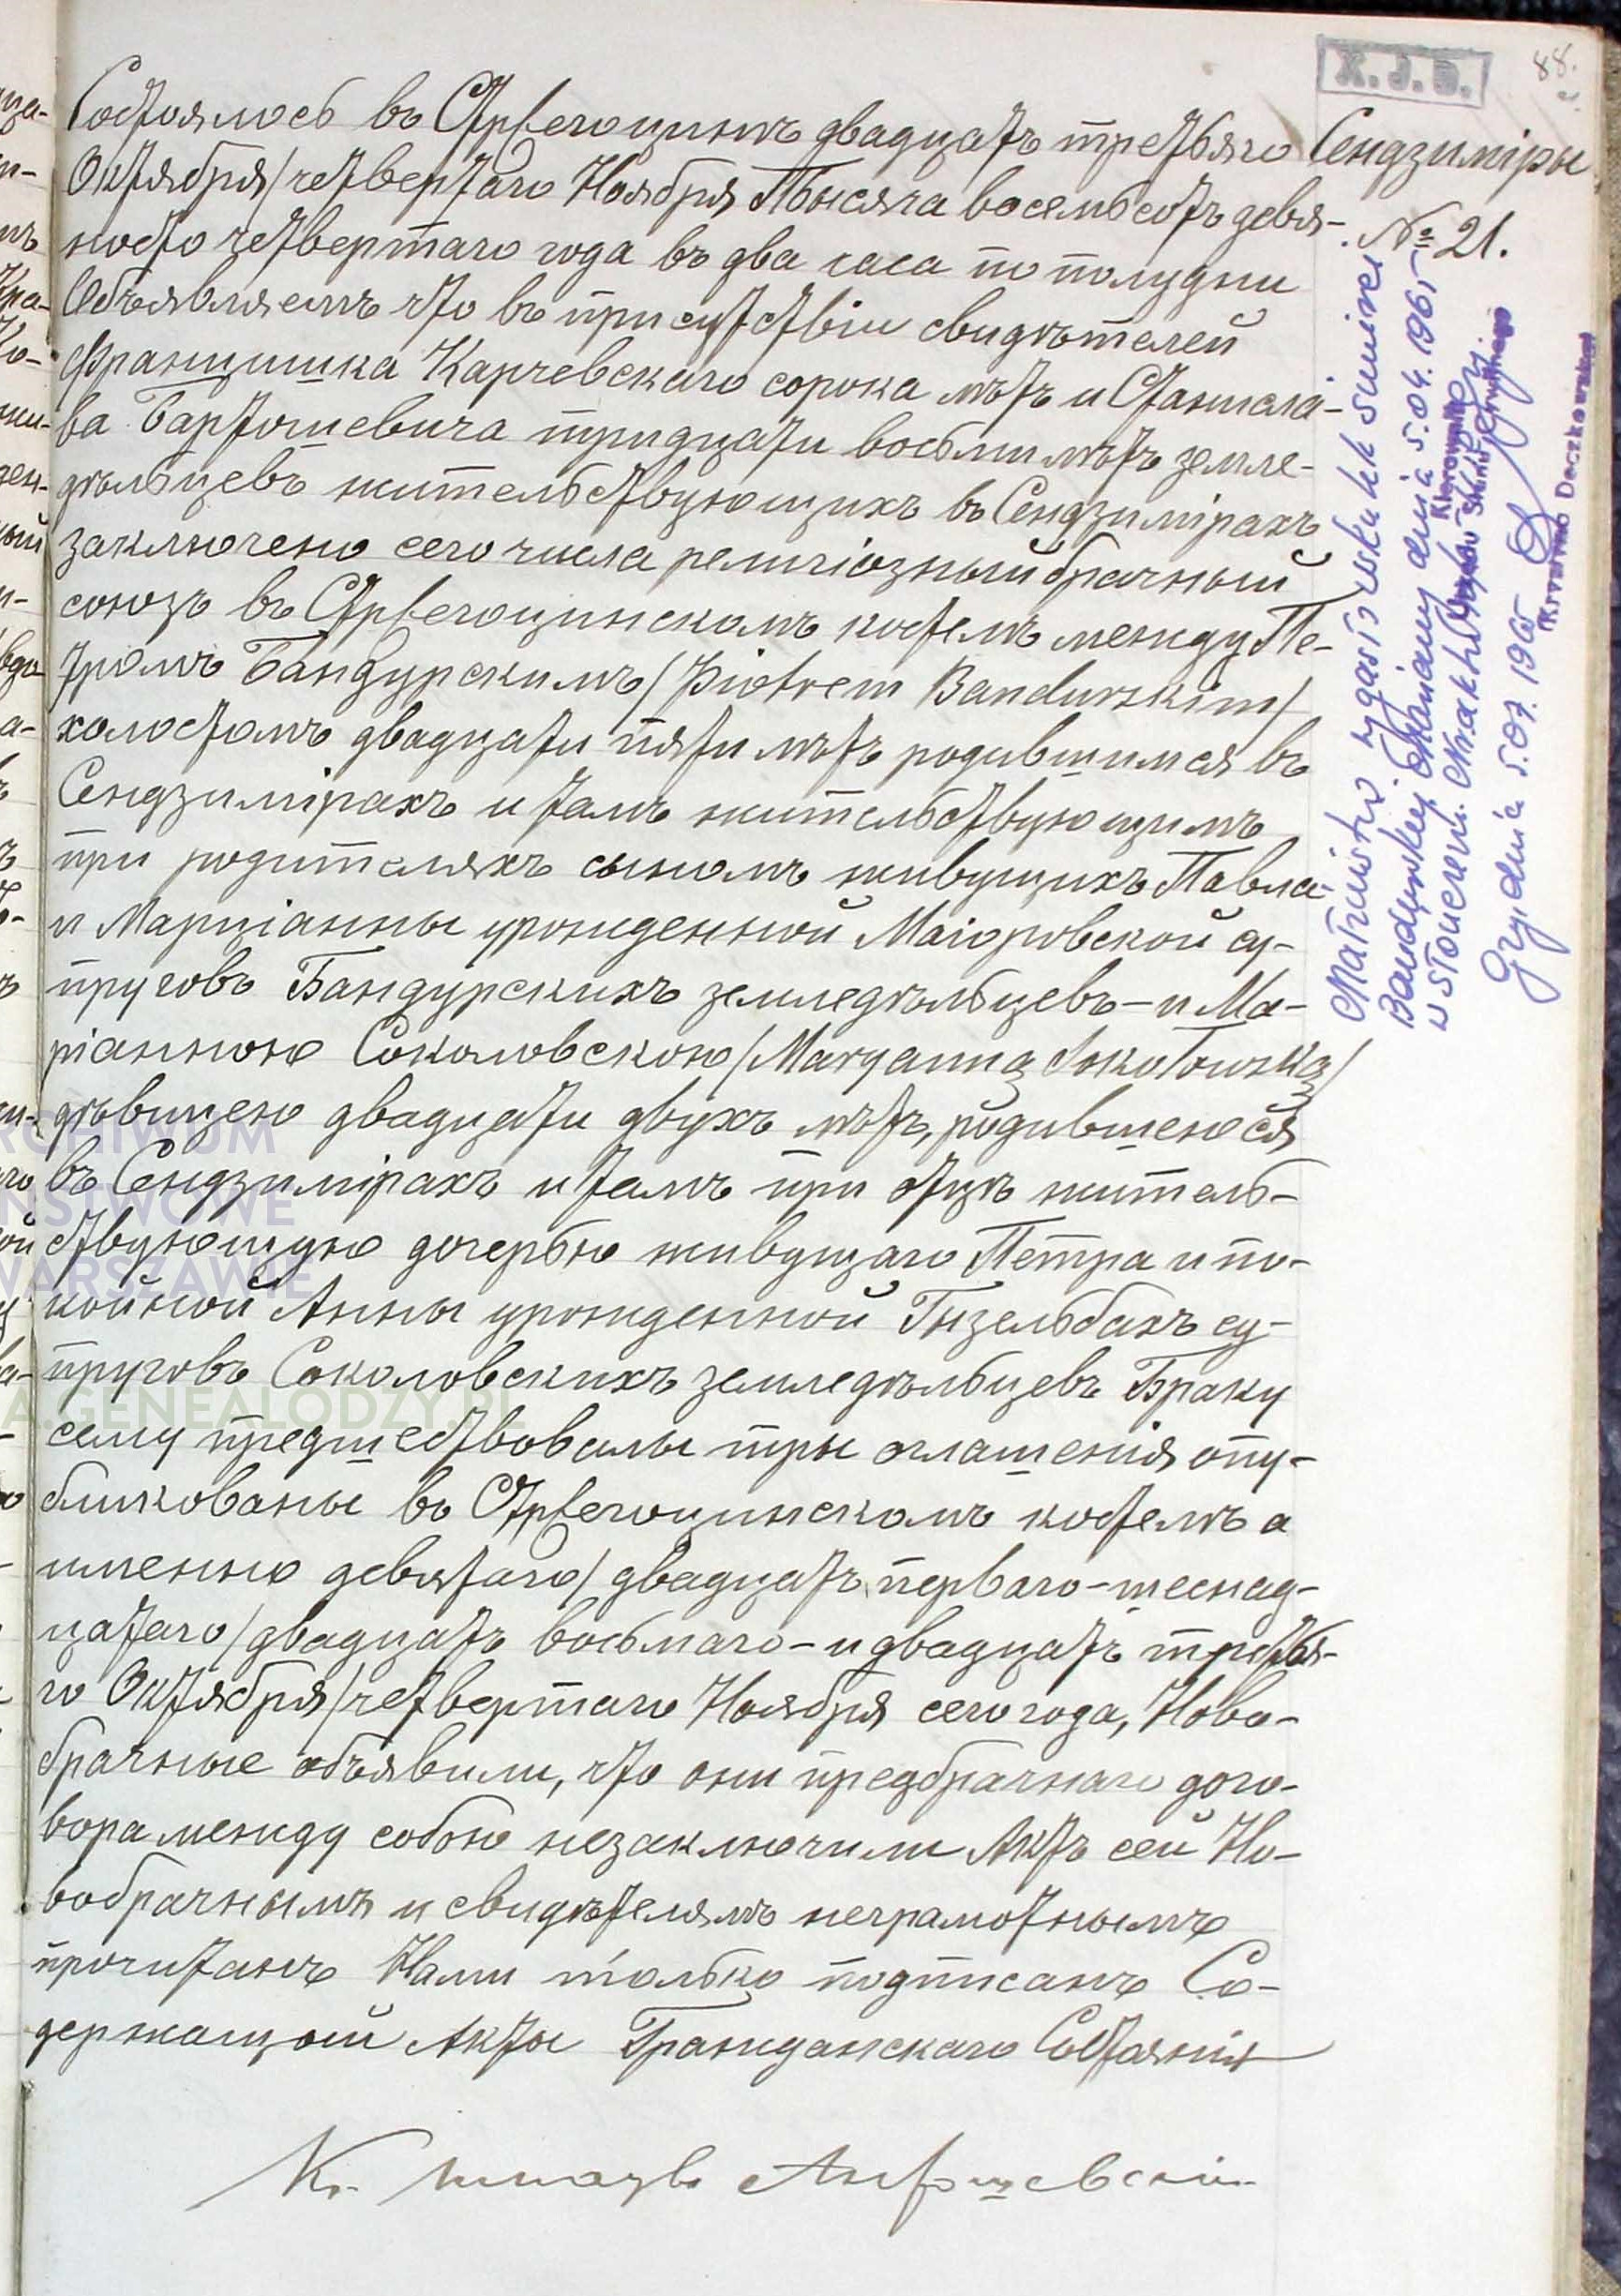 88.
Сендзиміры
№ 21.
Состоялось въ Стрвегоцинѣ двадцать третьяго
Октября/четвертаго Ноября Тысяча восемьсотъ девя-
носто четвертаго года въ два часа по полудни
Объявляемъ что въ присутствіи свидѣтелей
Францишка Карчевскаго сорока лѣтъ и Станисла-
ва Бартошевича тридцати восьми лѣтъ земле-
дѣльцевъ жительствующихъ въ Сендзимірахъ
заключено сего числа религіозный брачный
союзъ въ Стрвегоцинскомъ костелѣ между Пе-
тромъ Бандурскимъ/Piotrem Bandurskim/
холостомъ двадцати пяти лѣтъ родившимся въ
Сендзимірахъ и тамъ жительствующимъ
при родителяхъ сыномъ живущихъ Павла
и Марціанны урожденной Маіоровской су-
пруговъ Бандурскихъ земледѣльцевъ-и Ма-
ріанною Соколовскою/Maryanną Sokołowską/
дѣвицею двадцати двухъ лѣтъ, родившеюся
въ Сендзимірахъ и тамъ при отцѣ житель-
ствующую дочерью живущаго Петра и по-
койной Анны урожденной Гизельбахъ су-
пруговъ Соколовскихъ земледѣльцевъ Браку
сему предшествовалы тры оглашенія опу-
бликованы въ Стрвегоцинскомъ костелѣ а
именно девятаго/двадцать перваго-шеснад-
цатаго/двадцать восьмаго-и двадцать третья-
го Октября/четвертаго Ноября сего года, Ново-
брачные объявили, что они предбрачнаго дого-
вора между собою незаключили Актъ сей Но-
вобрачнымъ и свидѣтелямъ неграмотнымъ
прочитанъ Нами только подписанъ Со-
держащой Акты Гражданскаго Состоянія
Małżeństwo wygasło wskutek śmierci
Bandurskiej Marianny dnia 5.04.1961
w Słonczew.
Gzy, dnia 5.07.1965
Kierownik
Deczkowski
ARCHIWUM
PAŃSTWOWE
WARSZAWIE
GENEALODZY.PL